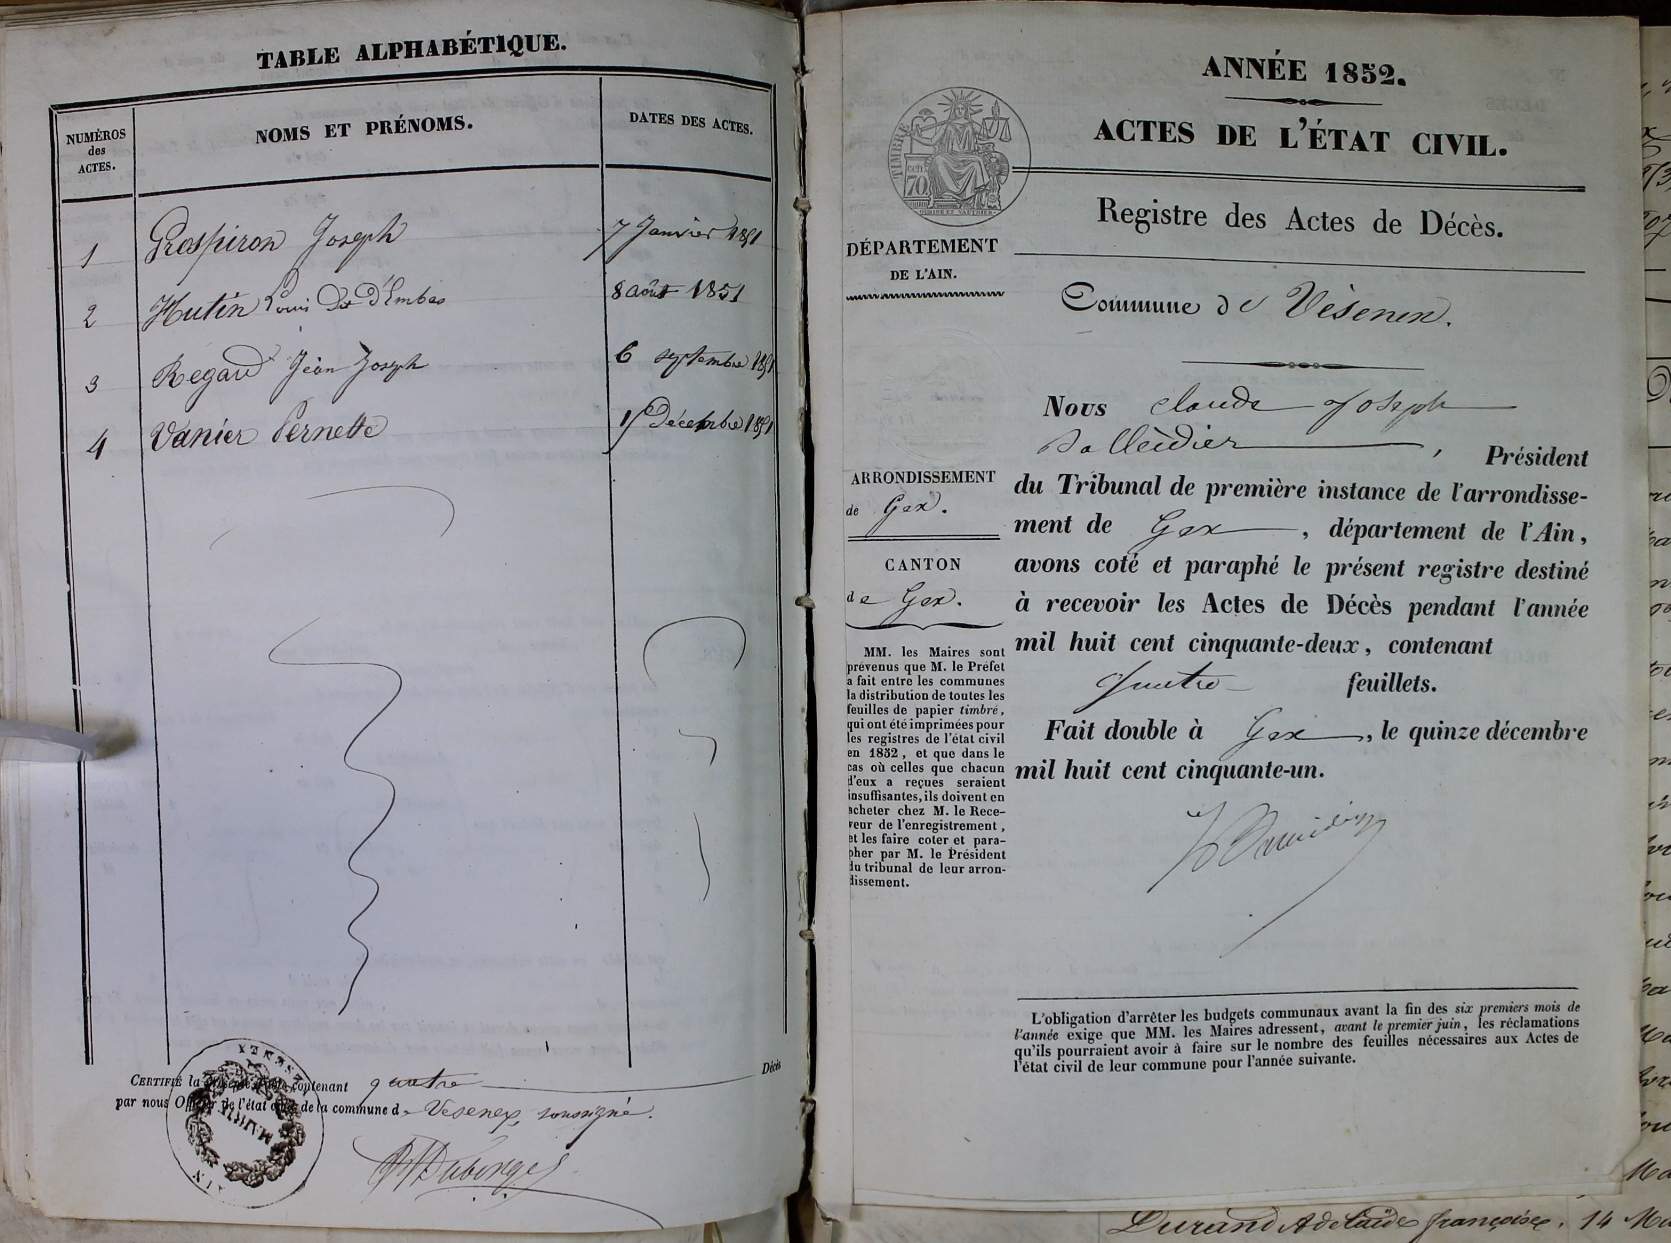 TABLE ALPHABÉTIQUE.
NUMÉROS
des
ACTES.
NOMS ET PRÉNOMS.
DATES DES ACTES.
1 Prospiron Joseph 7 Janvier 1851
2 Hutin Louis Dit d'Embas 8 août 1851
3 Regard Jean Joseph 6 septembre 1851
4 Vanier Pernette 15 Décembre 1851
CERTIFIÉ la présente Table contenant quatre Décès
par nous Officier de l'état civil de la commune de Vesenex soussigné.
ANNÉE 1852.
ACTES DE L'ÉTAT CIVIL.
TIMBRE
70
Registre des Actes de Décès.
DÉPARTEMENT
DE L'AIN.
Commune de Vésenex.
ARRONDISSEMENT
de Gex.
CANTON
de Gex.
MM. les Maires sont
prévenus que M. le Préfet
a fait entre les communes
la distribution de toutes les
feuilles de papier timbré,
qui ont été imprimées pour
les registres de l'état civil
en 1852, et que dans le
cas où celles que chacun
d'eux a reçues seraient
insuffisantes, ils doivent en
acheter chez M. le Rece-
veur de l'enregistrement,
et les faire coter et para-
pher par M. le Président
du tribunal de leur arron-
dissement.
Nous Claude Joseph
, Président
du Tribunal de première instance de l'arrondisse-
ment de Gex, département de l'Ain,
avons coté et paraphé le présent registre destiné
à recevoir les Actes de Décès pendant l'année
mil huit cent cinquante-deux, contenant
quatre feuillets.
Fait double à Gex, le quinze décembre
mil huit cent cinquante-un.
L'obligation d'arrêter les budgets communaux avant la fin des six premiers mois de
l'année exige que MM. les Maires adressent, avant le premier juin, les réclamations
qu'ils pourraient avoir à faire sur le nombre des feuilles nécessaires aux Actes de
l'état civil de leur commune pour l'année suivante.
Durand Adelaïde françoise. 14 Ma